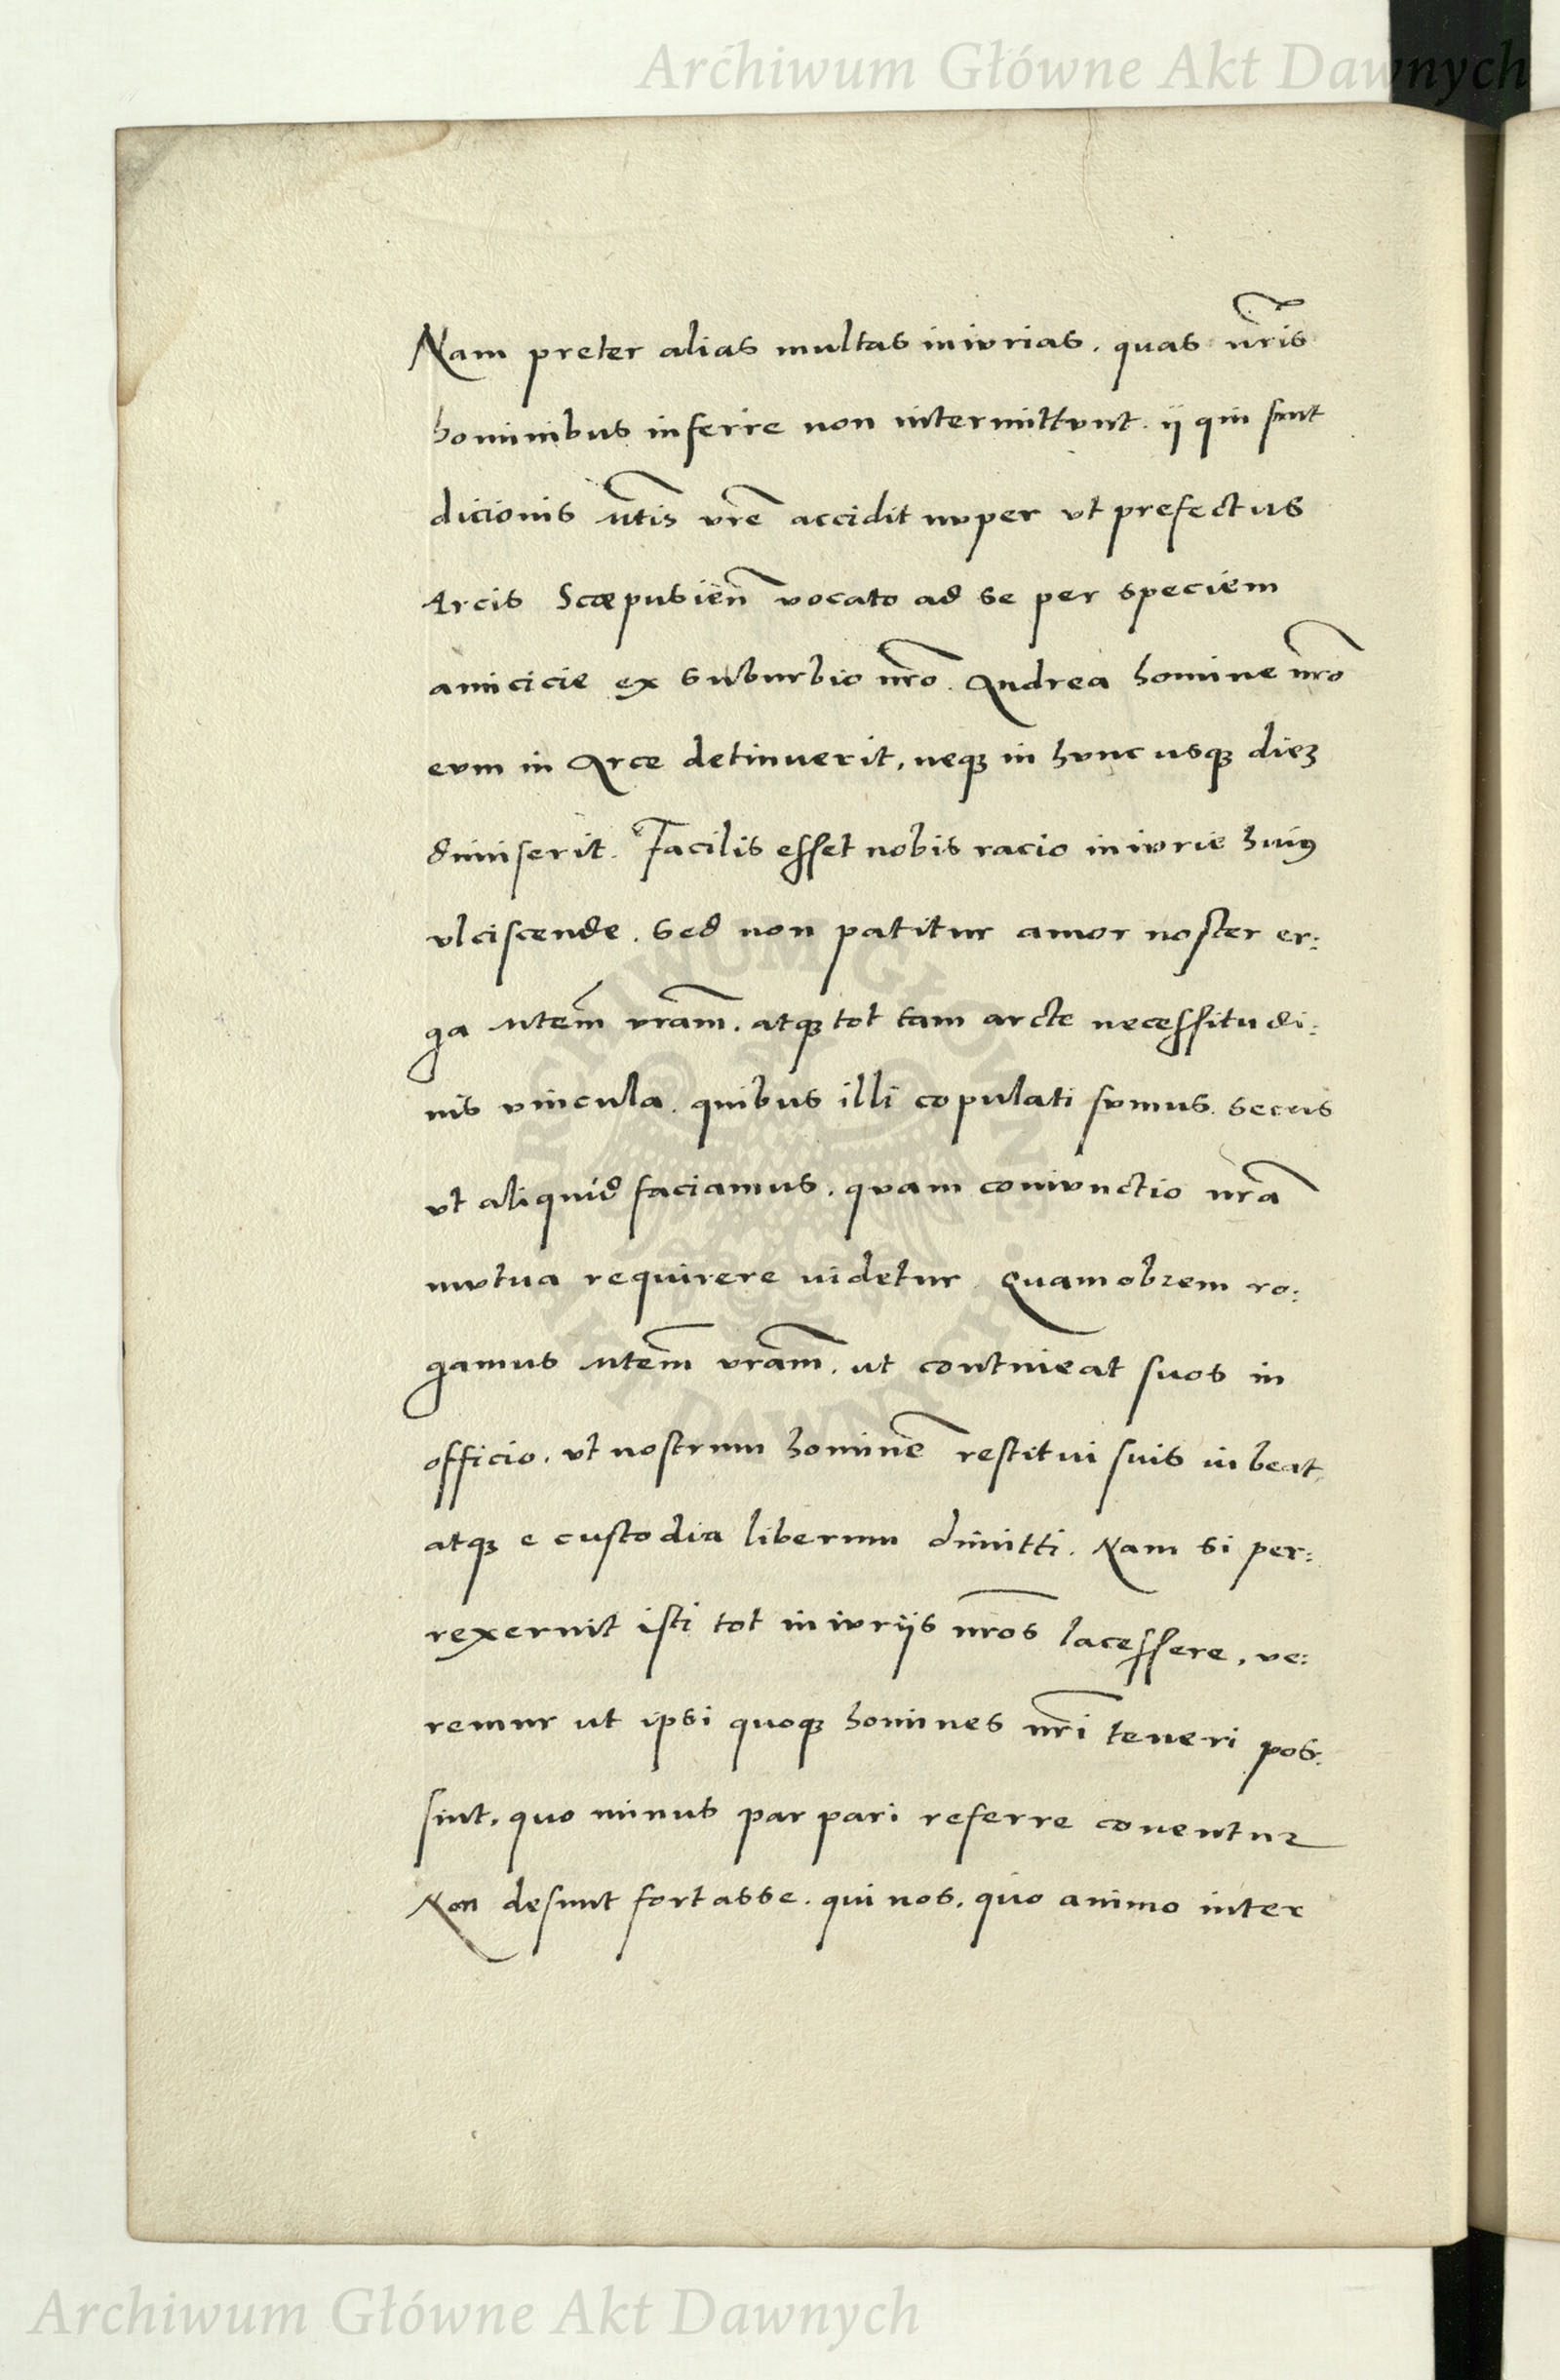 Archiwum Główne Akt Dawnych
Nam preter alias multas iniurias. quas nr̃is
hominibus inferre non intermittunt. ij qui sunt
dicionis Mtis vrẽ accidit nuper vt prefectus
Arcis Scæpusien̄ vocato ad se per speciem
amicicie ex suburbio nrõ. Andrea homine nrõ
eum in Arce detinuerit, neqꝫ in hunc usqꝫ dieꝫ
dimiserit. Facilis esset nobis racio iniurie huiꝰ
vlciscende. sed non patitur amor noster er:
ga Mtem̃ vram̃. atqꝫ tot tam arcte necessitudi:
nis vincula. quibus illi copulati sumus. secus
vt aliquid faciamus. quam coniunctio nrã
mutua requirere uidetur. Quamobrem ro:
gamus Mtem̃ vram̃. ut contineat suos in
officio. vt nostrum hominẽ restitui suis iubeat,
atqꝫ e custodia liberum dimitti. Nam si per:
rexerint isti tot iniurijs nrõs lacessere, ve:
remur ut ipsi quoqꝫ homines nrĩ teneri pos:
sint, quo minus par pari referre conentur
Non desunt fortasse. qui nos, quo animo inter
ARCHIWUM GŁÓWNE AKT DAWNYCH
Archiwum Główne Akt Dawnych